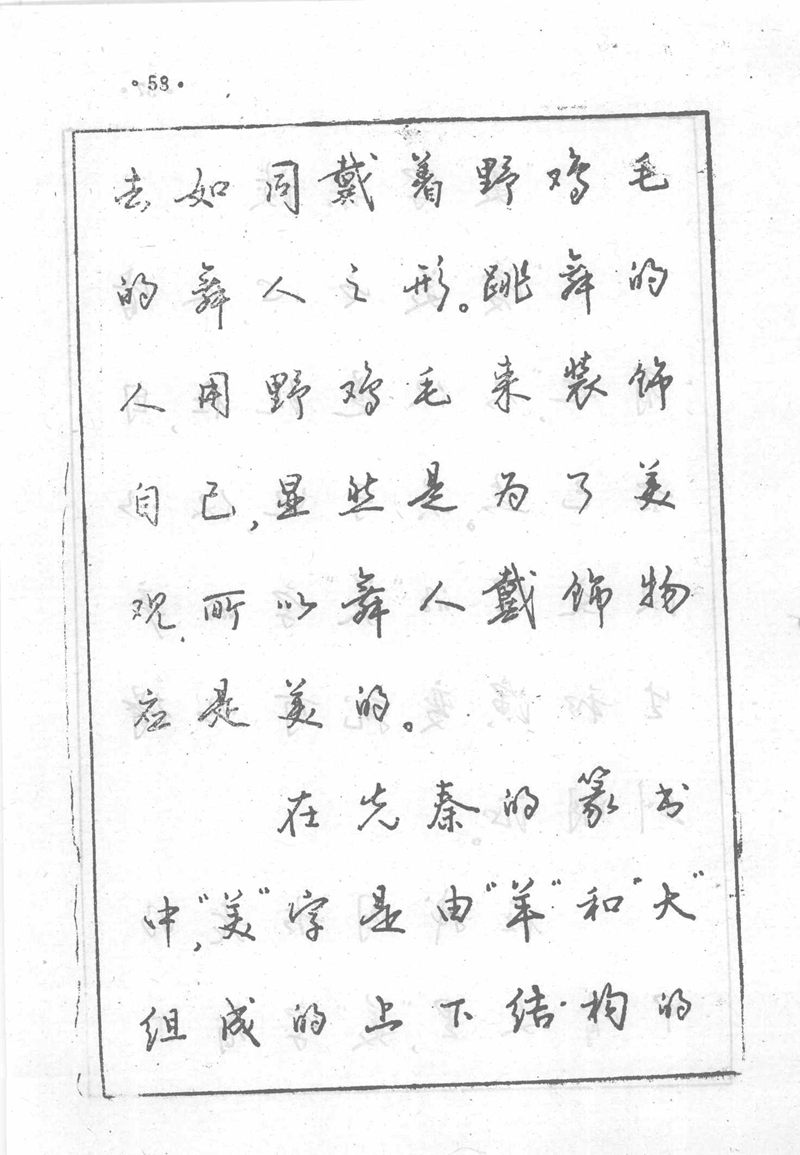 ·58·
去如同戴着野鸡毛
的舞人之形。跳舞的
人用野鸡毛来装饰
自己,显然是为了美
观,所以舞人戴饰物
应是美的。
在先秦的篆书
中,"美"字是由"羊"和"大"
组成的上下结构的